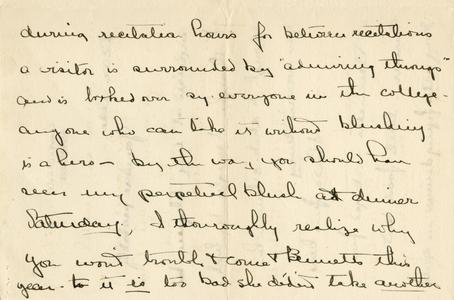 during recitation hours for between recitations
a visitor is surrounded by "admiring throngs"
and is looked over by everyone in the college -
anyone who can take it without blushing
is a hero - by the way, you should have
seen my perpetual blush at dinner
Saturday, I thouroughly realize why
you won't trouble & come to Bennetts this
year - to it is too bad she didn't take another